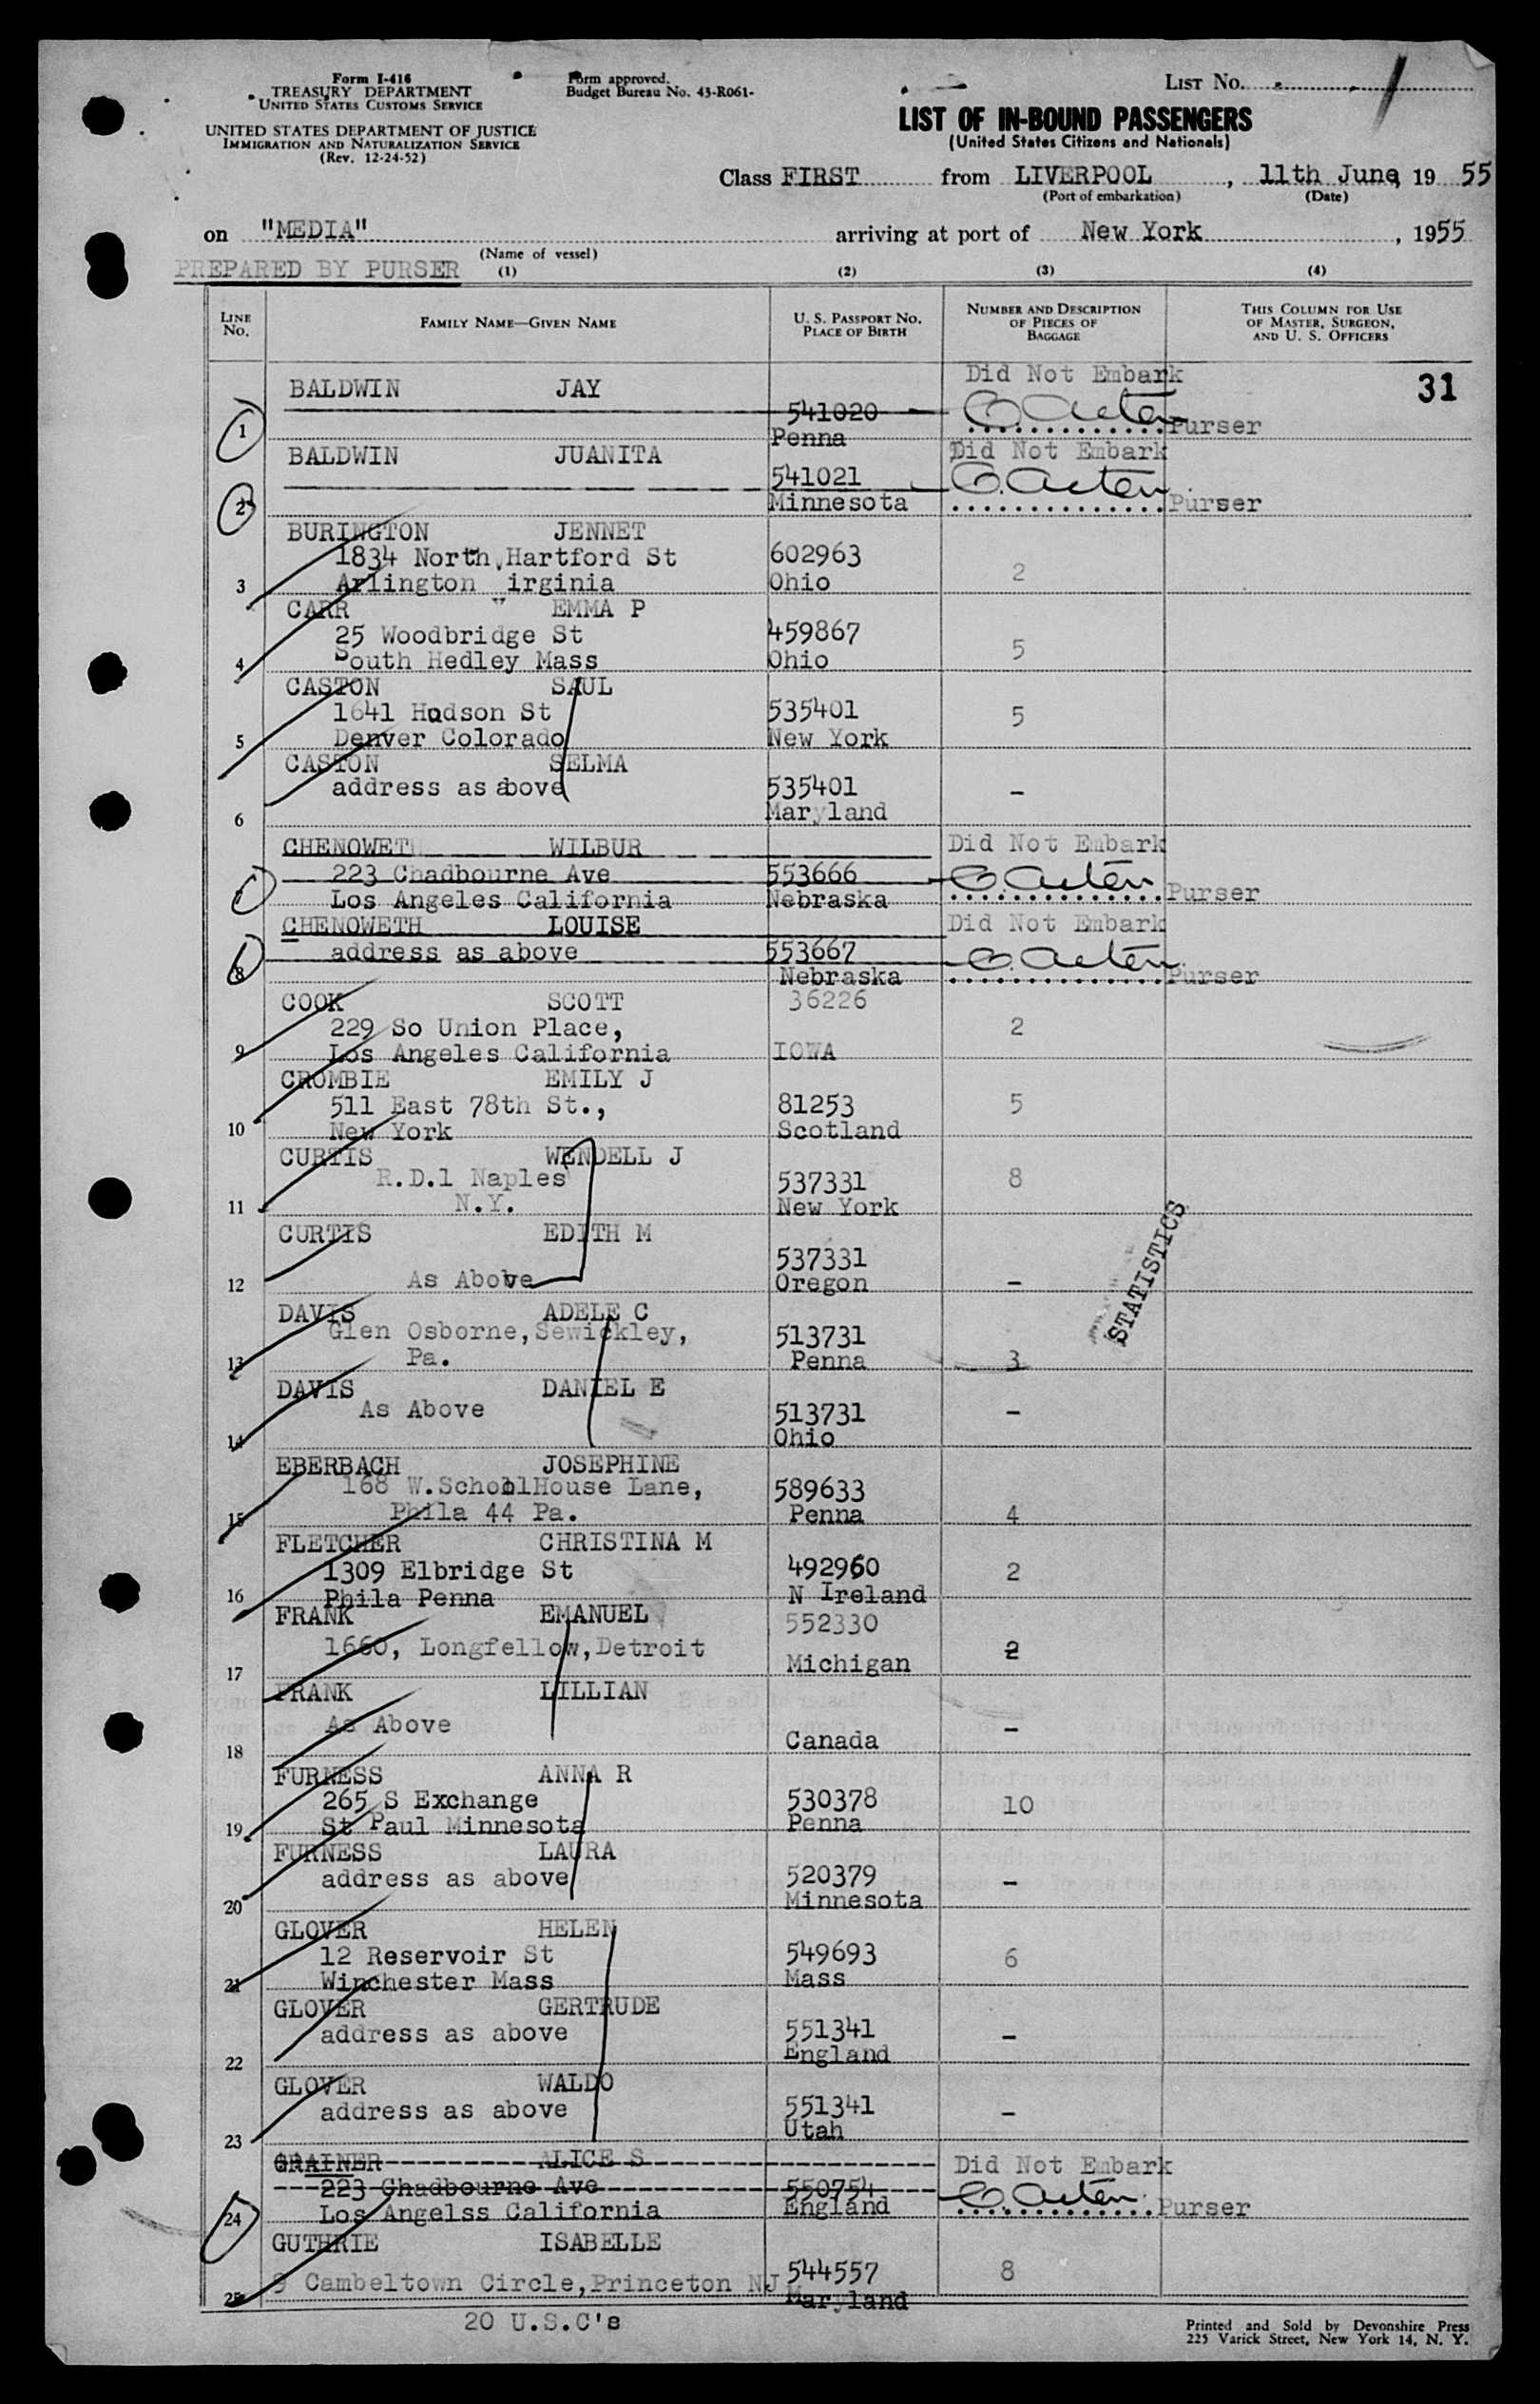 Form I-416
TREASURY DEPARTMENT
UNITED STATES CUSTOMS SERVICE
UNITED STATES DEPARTMENT OF JUSTICE
IMMIGRATION AND NATURALIZATION SERVICE
(Rev. 12-24-52)
Form approved.
Budget Bureau No. 43-R061-
LIST NO. 1
LIST OF IN-BOUND PASSENGERS
(United States Citizens and Nationals)
Class FIRST from LIVERPOOL, 11th June, 1955
(Port of embarkation) (Date)
on "MEDIA" arriving at port of New York, 1955
(Name of vessel)
PREPARED BY PURSER (1) (2) (3) (4)
LINE NO. FAMILY NAME—GIVEN NAME U. S. PASSPORT NO. PLACE OF BIRTH NUMBER AND DESCRIPTION OF PIECES OF BAGGAGE THIS COLUMN FOR USE OF MASTER, SURGEON, AND U. S. OFFICERS
31
BALDWIN JAY Did Not Embark
541020
1 Penna Purser
BALDWIN JUANITA Did Not Embark
541021
2 Minnesota Purser
BURINGTON JENNET
1834 North Hartford St 602963 2
3 Arlington Virginia Ohio
CARR EMMA P
25 Woodbridge St 459867 5
4 South Hedley Mass Ohio
CASTON SAUL
1641 Hudson St 535401 5
5 Denver Colorado New York
CASTON SELMA
address as above 535401 -
6 Maryland
CHENOWETH WILBUR Did Not Embark
223 Chadbourne Ave 553666
7 Los Angeles California Nebraska Purser
CHENOWETH LOUISE Did Not Embark
address as above 553667
8 Nebraska Purser
COOK SCOTT 36226
229 So Union Place, 2
9 Los Angeles California IOWA
CROMBIE EMILY J
511 East 78th St., 81253 5
10 New York Scotland
CURTIS WENDELL J
R.D.1 Naples 537331 8
11 N.Y. New York
CURTIS EDITH M
537331
12 As Above Oregon -
DAVIS ADELE C
Glen Osborne, Sewickley, 513731
13 Pa. Penna 3
STATISTICS
DAVIS DANIEL E
As Above 513731 -
14 Ohio
EBERBACH JOSEPHINE
168 W.School House Lane, 589633
15 Phila 44 Pa. Penna 4
FLETCHER CHRISTINA M
1309 Elbridge St 492960 2
16 Phila Penna N Ireland
FRANK EMANUEL 552330
1660, Longfellow, Detroit 2
17 Michigan
FRANK LILLIAN
As Above -
18 Canada
FURNESS ANNA R
265 S Exchange 530378 10
19 St Paul Minnesota Penna
FURNESS LAURA
address as above 520379 -
20 Minnesota
GLOVER HELEN
12 Reservoir St 549693 6
21 Winchester Mass Mass
GLOVER GERTRUDE
address as above 551341 -
22 England
GLOVER WALDO
address as above 551341 -
23 Utah
GRAINER ALICE S Did Not Embark
223 Chadbourne Ave 550754
24 Los Angelss California England Purser
GUTHRIE ISABELLE
9 Cambeltown Circle, Princeton NJ 544557 8
25 Maryland
20 U.S.C's
Printed and Sold by Devonshire Press
225 Varick Street, New York 14, N. Y.